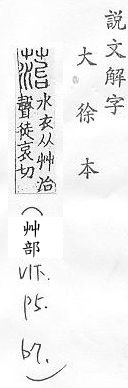 說文解字
大徐本
菭 水衣从艸治
聲徒哀切
(艸部 V1下. P5. b7.)